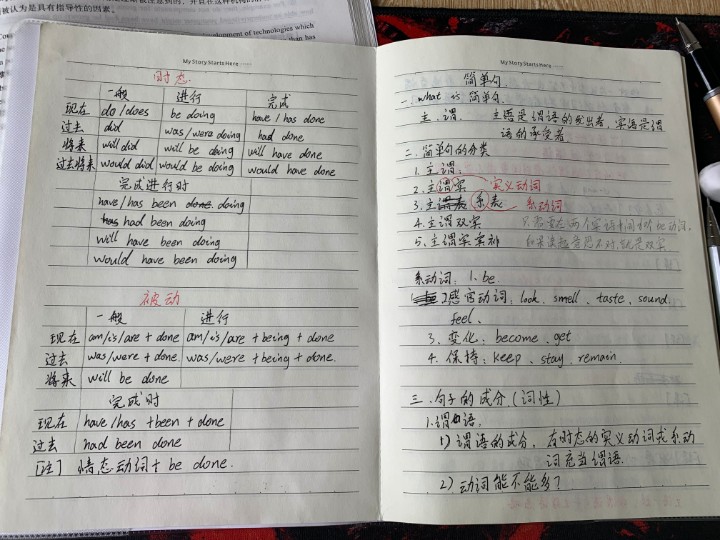 被认为是具有指导性的因素。
development of technologies which
than has
My Story Starts Here
时态
一般 进行 完成
现在 do/does be doing have/has done
过去 did was/were doing had done
将来 will did will be doing will have done
过去将来 would did would be doing would have done
完成进行时
have/has been done doing
has had been doing
will have been doing
would have been doing
被动
一般 进行
现在 am/is/are + done am/is/are + being + done
过去 was/were + done. was/were + being + done.
将来 will be done
完成时
现在 have/has + been + done
过去 had been done
[注] 情态动词 + be done.
My Story Starts Here
简单句
一. what is 简单句.
主、谓. 主语是谓语的发出者, 宾语是谓
语的承受者.
二. 简单句的分类
1. 主谓;
2. 主谓宾 实义动词
3. 主谓表 系表 系动词
4. 主谓双宾
5. 主谓宾宾补
系动词: 1. be
2. 感官动词: look、smell、taste、sound、
feel、
3. 变化: become、get
4. 保持: keep、stay、remain.
三. 句子的成分 (词性)
1. 谓语.
1) 谓语的成分, 有时态的实义动词或系动
词充当谓语.
2) 动词能不能多?